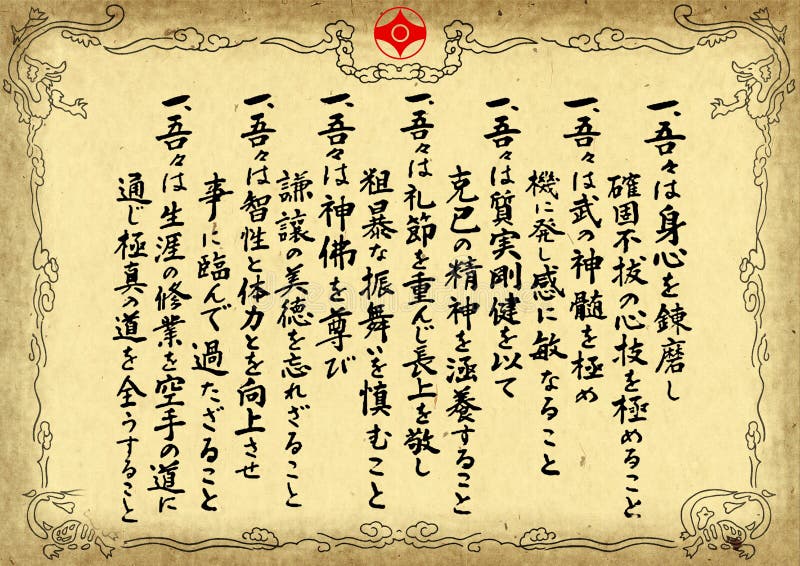 一、吾々は身心を錬磨し
確固不拔の心技を極めること
一、吾々は武の神髄を極め
機に発し感に敏なること
一、吾々は質実剛健を以て
克己の精神を涵養すること
一、吾々は礼節を重んじ長上を敬し
粗暴な振舞いを慎むこと
一、吾々は神佛を尊び
謙譲の美徳を忘れざること
一、吾々は智性と体力とを向上させ
事に臨んで過たざること
一、吾々は生涯の修業を空手の道に
通じ極真の道を全うすること